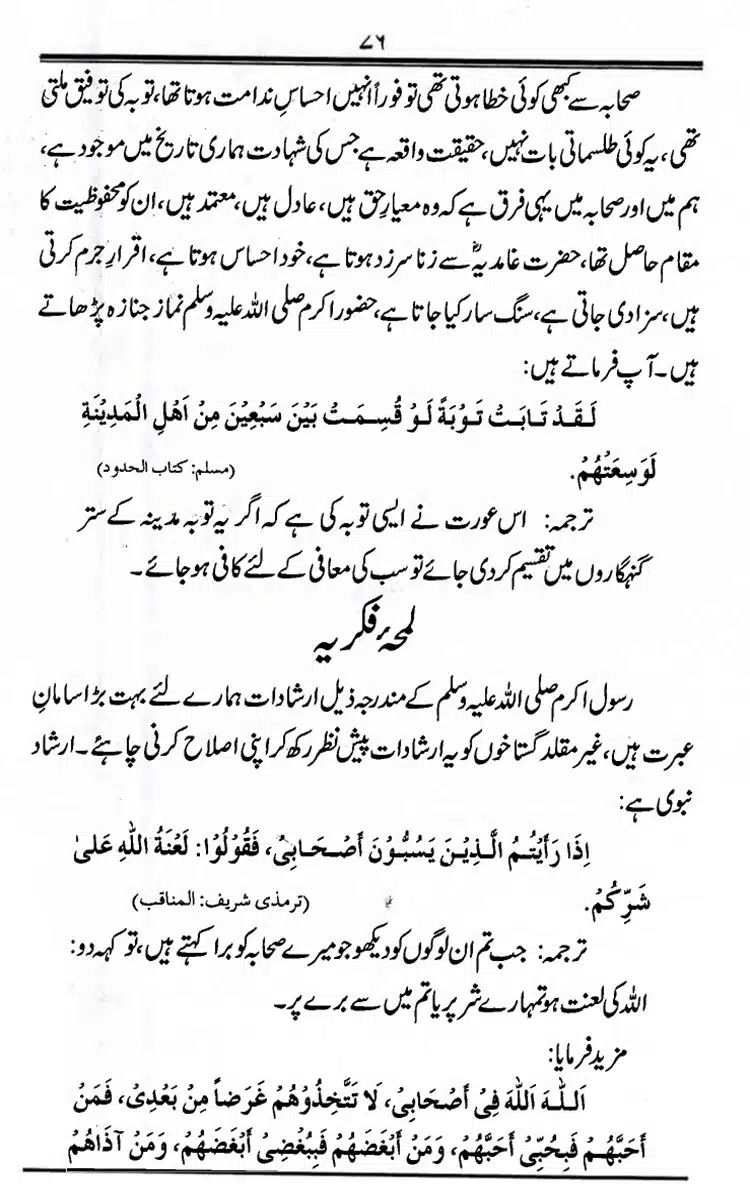 ۷۶
صحابہ سے کبھی کوئی خطا ہوتی تھی تو فوراً انہیں احساسِ ندامت ہوتا تھا، توبہ کی توفیق ملتی
تھی، یہ کوئی طلسماتی بات نہیں، حقیقت واقعہ ہے جس کی شہادت ہماری تاریخ میں موجود ہے،
ہم میں اور صحابہ میں یہی فرق ہے کہ وہ معیارِ حق ہیں، عادل ہیں، معتمد ہیں، ان کو محفوظیت کا
مقام حاصل تھا، حضرت غامدیہؓ سے زنا سرزد ہوتا ہے، خود احساس ہوتا ہے، اقرارِ جرم کرتی
ہیں، سزا دی جاتی ہے، سنگ سار کیا جاتا ہے، حضور اکرم صلی اللہ علیہ وسلم نماز جنازہ پڑھاتے
ہیں۔ آپ فرماتے ہیں:
لَقَدْ تَابَتْ تَوْبَةً لَوْ قُسِمَتْ بَيْنَ سَبْعِيْنَ مِنْ اَهْلِ الْمَدِيْنَةِ
لَوَسِعَتْهُمْ. (مسلم: كتاب الحدود)
ترجمہ: اس عورت نے ایسی توبہ کی ہے کہ اگر یہ توبہ مدینہ کے ستر
گنہگاروں میں تقسیم کردی جائے تو سب کی معافی کے لئے کافی ہوجائے۔
لمحۂ فکریہ
رسول اکرم صلی اللہ علیہ وسلم کے مندرجہ ذیل ارشادات ہمارے لئے بہت بڑا سامانِ
عبرت ہیں، غیر مقلد گستاخوں کو یہ ارشادات پیش نظر رکھ کر اپنی اصلاح کرنی چاہئے۔ ارشاد
نبوی ہے:
اِذَا رَأَيْتُمُ الَّذِيْنَ يَسُبُّوْنَ أَصْحَابِیْ، فَقُوْلُوْا: لَعْنَةُ اللهِ عَلىٰ
شَرِّكُمْ. (ترمذی شریف: المناقب)
ترجمہ: جب تم ان لوگوں کو دیکھو جو میرے صحابہ کو برا کہتے ہیں، تو کہہ دو:
اللہ کی لعنت ہو تمہارے شر پر یا تم میں سے برے پر۔
مزید فرمایا:
اَللّٰهَ اَللّٰهَ فِیْ أَصْحَابِیْ، لَا تَتَّخِذُوْهُمْ غَرَضاً مِنْ بَعْدِیْ، فَمَنْ
أَحَبَّهُمْ فَبِحُبِّیْ أَحَبَّهُمْ، وَمَنْ أَبْغَضَهُمْ فَبِبُغْضِیْ أَبْغَضَهُمْ، وَمَنْ آذَاهُمْ